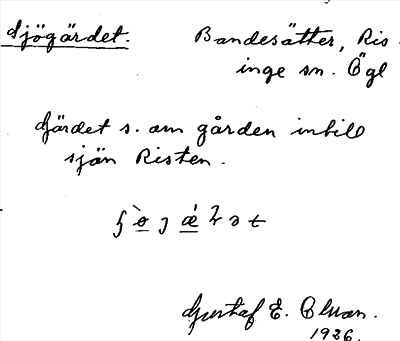 Sjögärdet. Bandesätter, Ris-
inge sn. Ögl
Gärdet s. om gården intill
sjön Risten.
Gustaf E.
1936.